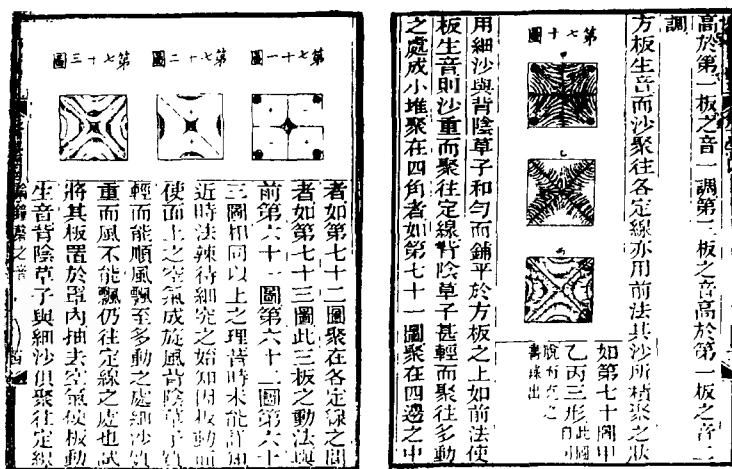 高於第一板之音一調第一板之音高於第一板之音二
調
方板生音而沙聚往各定線亦用前法其沙所積聚之狀
第七十圖
甲
乙
丙
如第七十圖甲
乙丙三形此圖
書錄出
用細沙與背陰草子和勻而鋪平於方板之上如前法使
板生音則沙重而聚往定線背陰草子甚輕而聚往多動
之處成小堆聚在四角者如第七十一圖聚在四邊之中
第七十一圖
第七十二圖
第七十三圖
者如第七十二圖聚在各定線之間
者如第七十三圖此三板之動法與
前第六十一圖第六十二圖第六十
三圖相同以上之理昔時未能詳知
近時法辣待細究之始知因板動而
使面上之空氣成旋風背陰草子質
輕而能順風飄至多動之處細沙質
重而風不能飄仍往定線之處也試
將其板置於罩內抽去空氣使板動
生音背陰草子與細沙俱聚往定線